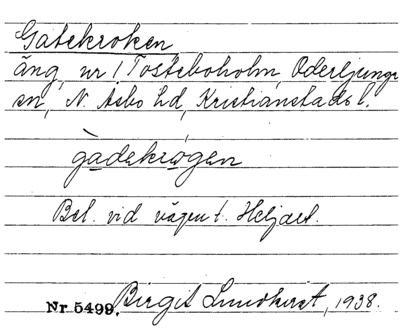 Gatekroken
äng, nr 1 Tosteboholm, Oderljunga
sn, N. Åsbo hd, Kristianstads l.
gadekrogen
Bel. vid vägen t. Heljaet.
Nr 5499. Birgit Lundkvist, 1938.